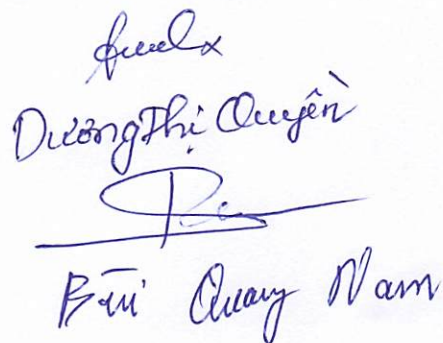 Dương Thị Quyên
Bùi Quang Nam